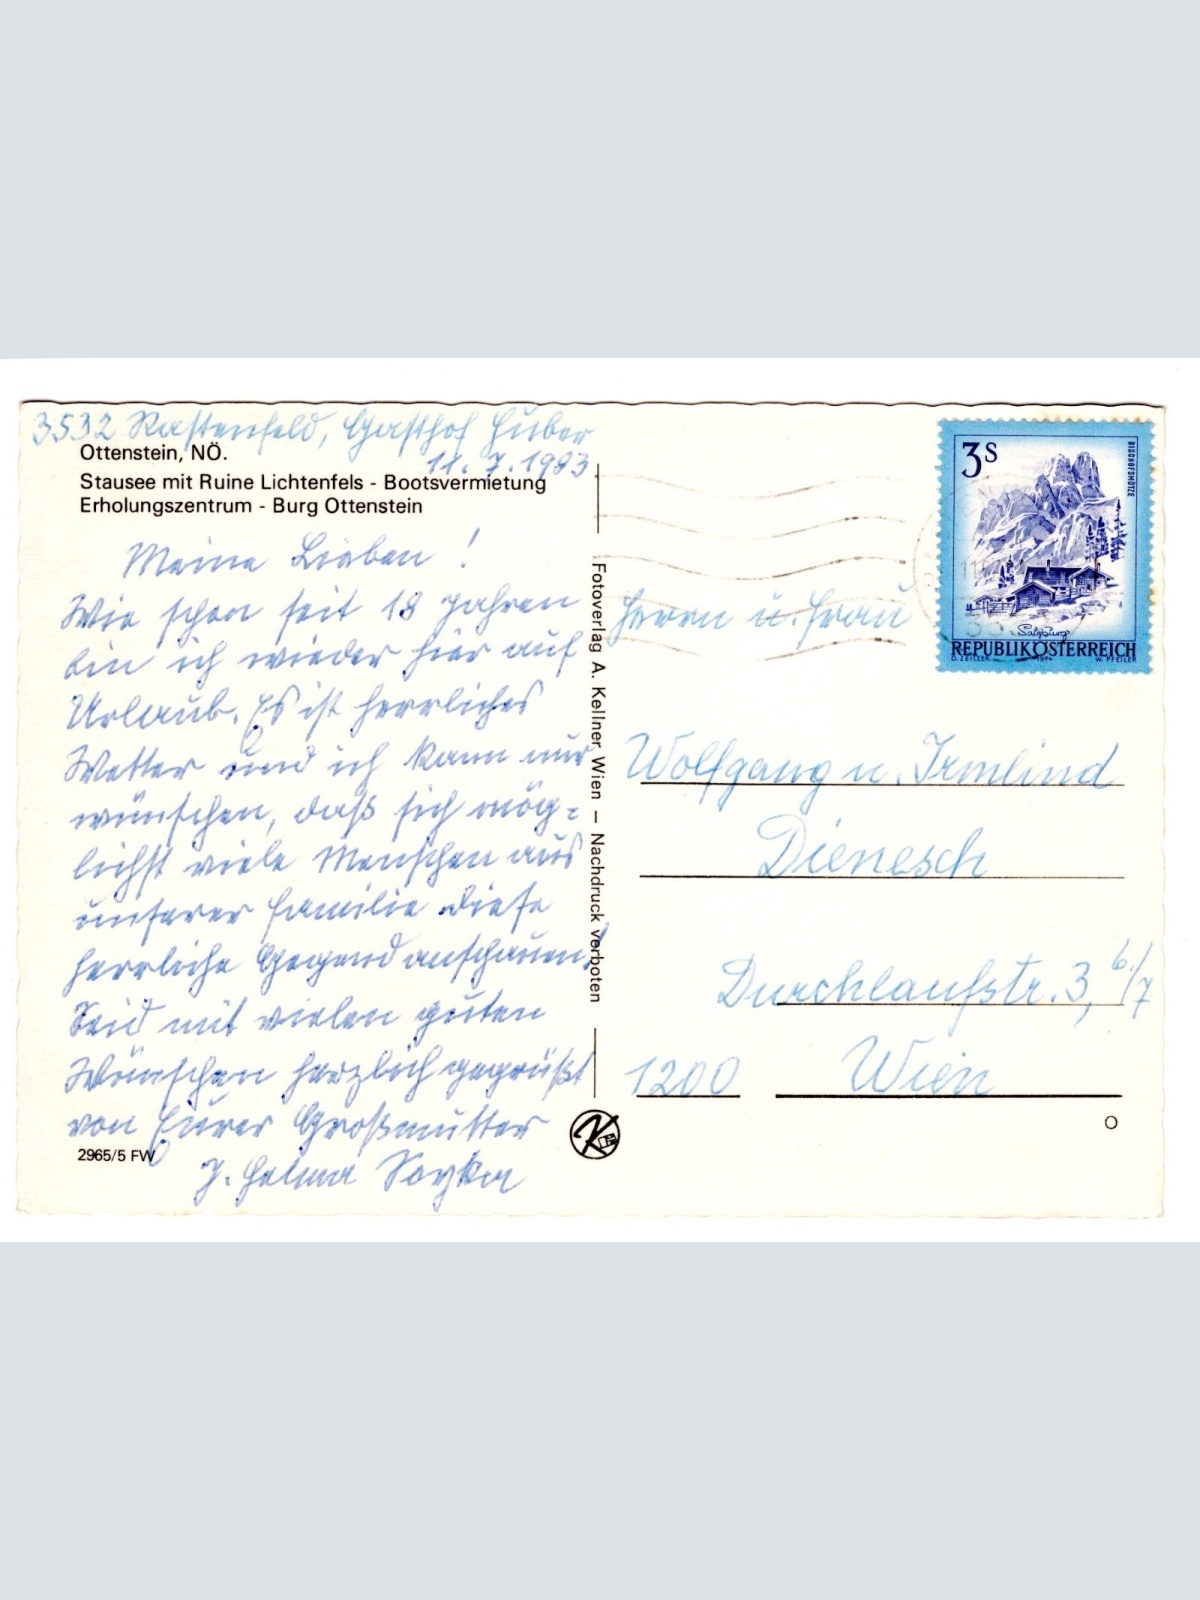 3532 Rastenfeld, Gasthof Huber
11. 7. 1983
Ottenstein, NÖ.
Stausee mit Ruine Lichtenfels - Bootsvermietung
Erholungszentrum - Burg Ottenstein
Meine Lieben !
Wie schon seit 18 Jahren
bin ich wieder hier auf
Urlaub. Es ist herrliches
Wetter und ich kann nur
wünschen, daß sich mög=
lichst viele Menschen aus
unserer Familie diese
herrliche Gegend anschauen!
Seid mit vielen guten
Wünschen herzlich gegrüßt
von Eurer Großmutter
J. Helma Soyka
2965/5 FW
Fotoverlag A. Kellner Wien – Nachdruck verboten
3S
BISCHOFSMÜTZE
Salzburg
REPUBLIK ÖSTERREICH
O. ZEILLER 1974 W. PFEILER
Herrn u. Frau
Wolfgang u. Irmlind
Dienesch
Durchlaufstr. 3, 6./7
1200 Wien